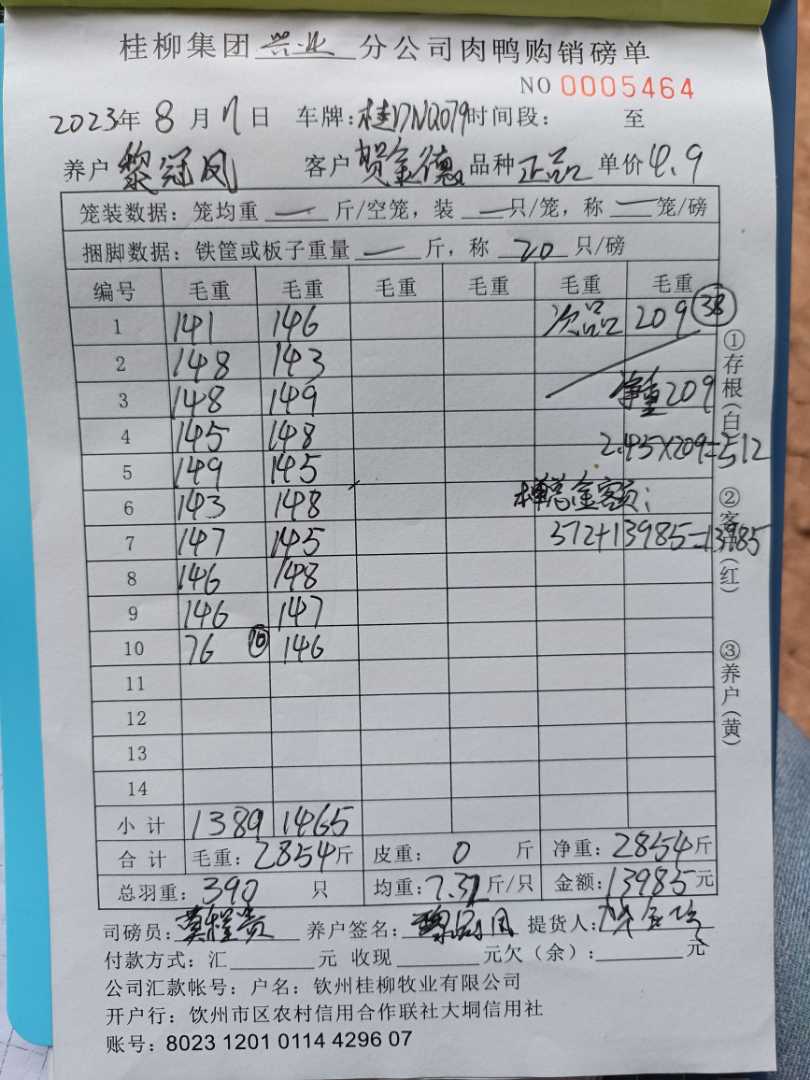 桂柳集团兴业分公司肉鸭购销磅单
NO 0005464
2023年8月17日 车牌:桂DNQ079时间段: 至
养户黎冠凤 客户贺金德 品种正品 单价4.9
笼装数据:笼均重 — 斤/空笼,装 — 只/笼,称 — 笼/磅
捆脚数据:铁筐或板子重量 — 斤,称 20 只/磅
编号 毛重 毛重 毛重 毛重 毛重 毛重
1 141 146 次品 209 38
2 148 143
3 148 149 净重209
4 145 148 2.45×209=512
5 149 145
6 143 148 总金额:
7 147 145 572+13985=13985
8 146 148
9 146 147
10 76 10 146
11
12
13
14
小计 1389 1465
合计 毛重:2854斤 皮重:0斤 净重:2854斤
总羽重:390只 均重:7.32斤/只 金额:13985元
司磅员: 养户签名: 提货人:
付款方式:汇 元 收现 元欠(余): 元
公司汇款帐号:户名:钦州桂柳牧业有限公司
开户行:饮州市区农村信用合作联社大垌信用社
账号:8023 1201 0114 4296 07
①存根(白) ②客(红) ③养户(黄)